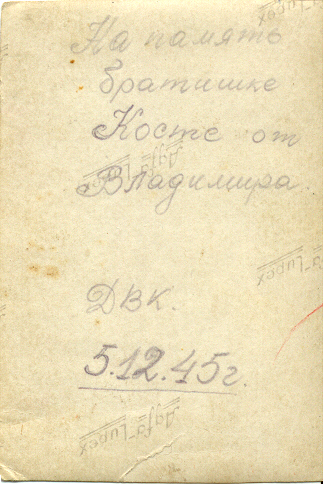 Agfa-Lupex
На память
братишке
Косте от
Agfa-Lupex
Владимира
Agfa-Lupex
ДВК.
5.12.45г.
Agfa-Lupex